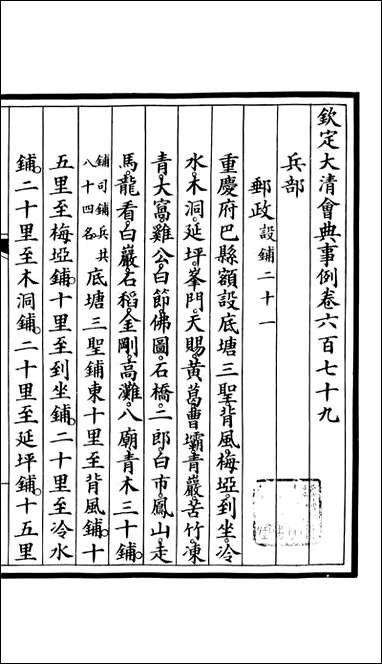 欽定大清會典事例卷六百七十九
兵部
郵政設鋪二十一
重慶府巴縣額設底塘三聖背風梅埡到坐冷
水木洞延坪峯門天賜黃葛曹壩青巖苦竹凍
青大窩雞公白節佛圖石橋二郎白市鳳山走
馬龍看白巖石稻金剛高灘八廟青木三十鋪
鋪司鋪兵共八十四名底塘三聖鋪東十里至背風鋪十
五里至梅埡鋪十里至到坐鋪二十里至冷水
鋪二十里至木洞鋪二十里至延坪鋪十五里